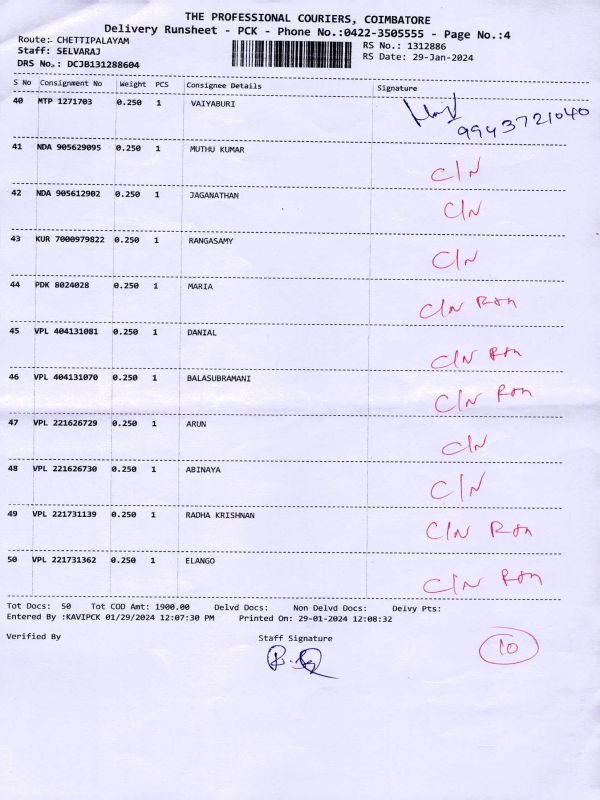 THE PROFESSIONAL COURIERS, COIMBATORE
Delivery Runsheet - PCK - Phone No.:0422-3505555 - Page No.:4
Route:- CHETTIPALAYAM
RS No.: 1312886
Staff: SELVARAJ
RS Date: 29-Jan-2024
DRS No.: DCJB131288604
S No Consignment No Weight PCS Consignee Details Signature
40 MTP 1271703 0.250 1 VAIYABURI
9943721040
41 NDA 905629095 0.250 1 MUTHU KUMAR C/N
42 NDA 905612902 0.250 1 JAGANATHAN C/N
43 KUR 7000979822 0.250 1 RANGASAMY C/N
44 PDK 8024028 0.250 1 MARIA C/N
45 VPL 404131081 0.250 1 DANIAL C/N
46 VPL 404131070 0.250 1 BALASUBRAMANI C/N
47 VPL 221626729 0.250 1 ARUN C/N
48 VPL 221626730 0.250 1 ABINAYA C/N
49 VPL 221731139 0.250 1 RADHA KRISHNAN C/N
50 VPL 221731362 0.250 1 ELANGO C/N
Tot Docs: 50 Tot COD Amt: 1900.00 Delvd Docs: Non Delvd Docs: Delvy Pts:
Entered By :KAVIPCK 01/29/2024 12:07:30 PM Printed On: 29-01-2024 12:08:32
Verified By Staff Signature
10